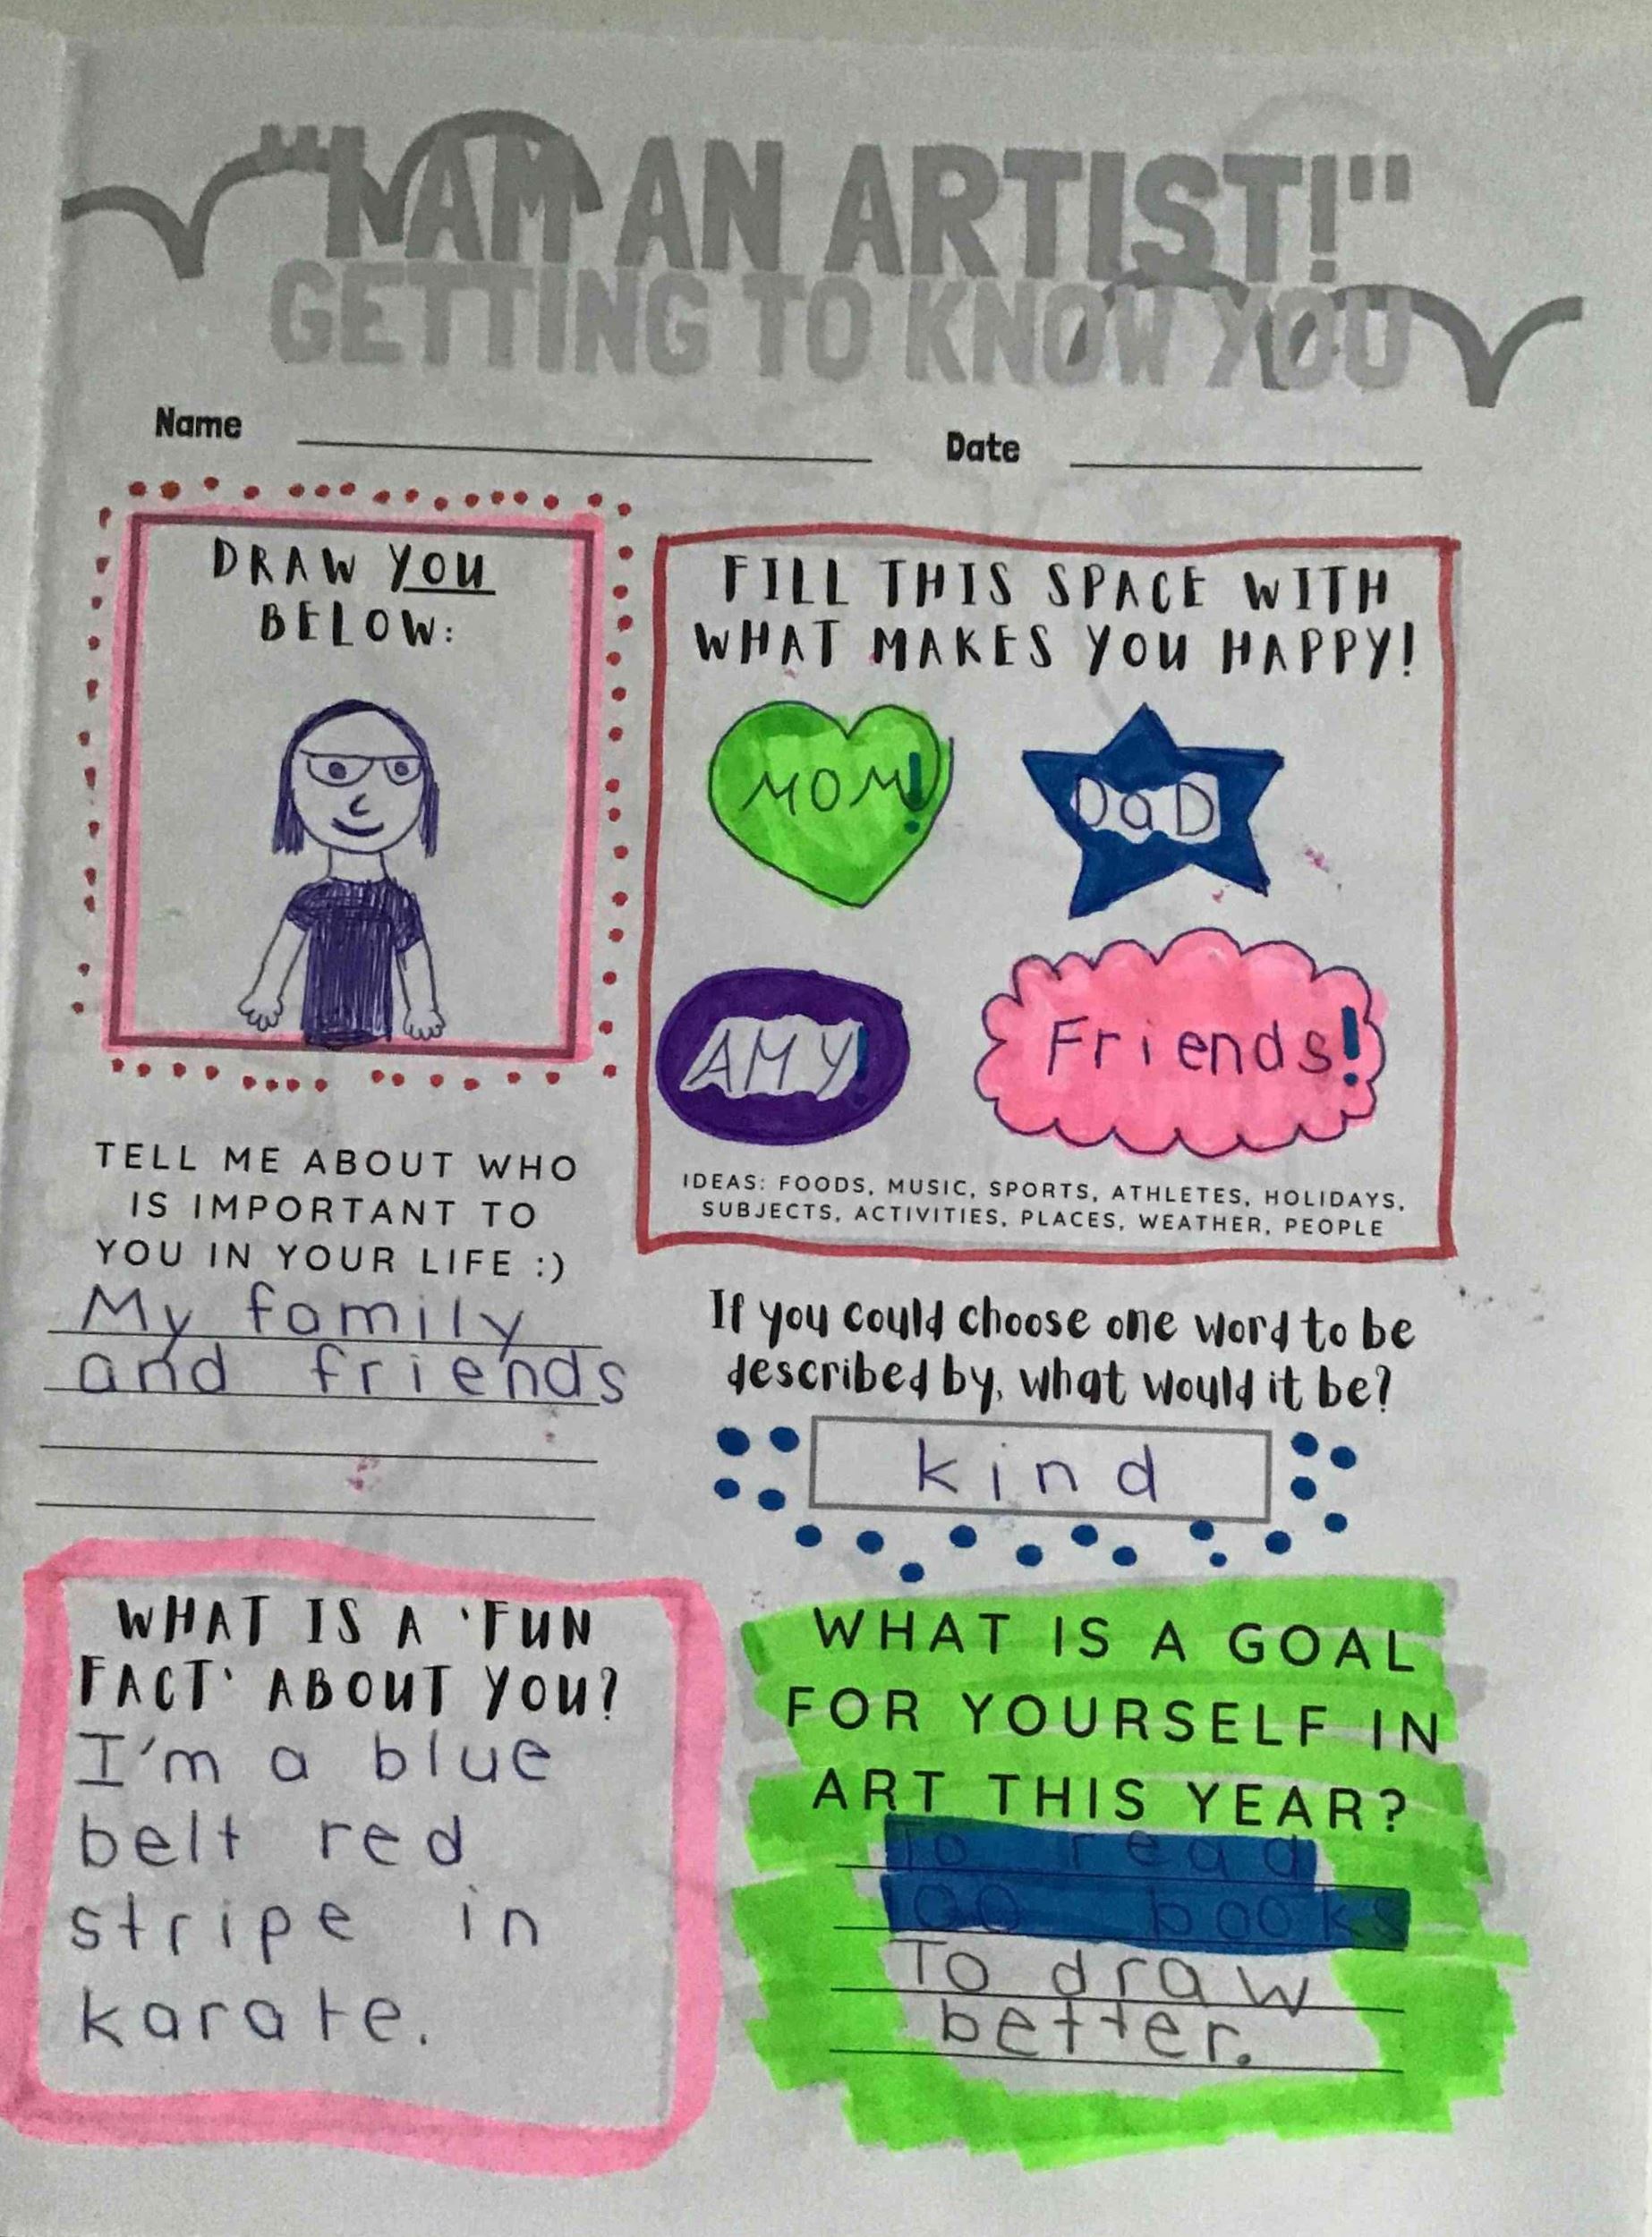 "I AM AN ARTIST!"
GETTING TO KNOW YOU
Name
Date
DRAW YOU
BELOW:
FILL THIS SPACE WITH
WHAT MAKES YOU HAPPY!
MOM!
DaD
AMY!
Friends!
IDEAS: FOODS, MUSIC, SPORTS, ATHLETES, HOLIDAYS,
SUBJECTS, ACTIVITIES, PLACES, WEATHER, PEOPLE
TELL ME ABOUT WHO
IS IMPORTANT TO
YOU IN YOUR LIFE :)
My family
and friends
If you could choose one word to be
described by, what would it be?
kind
WHAT IS A 'FUN
FACT' ABOUT YOU?
I'm a blue
belt red
stripe in
karate.
WHAT IS A GOAL
FOR YOURSELF IN
ART THIS YEAR?
To read
100 books
To draw
better.